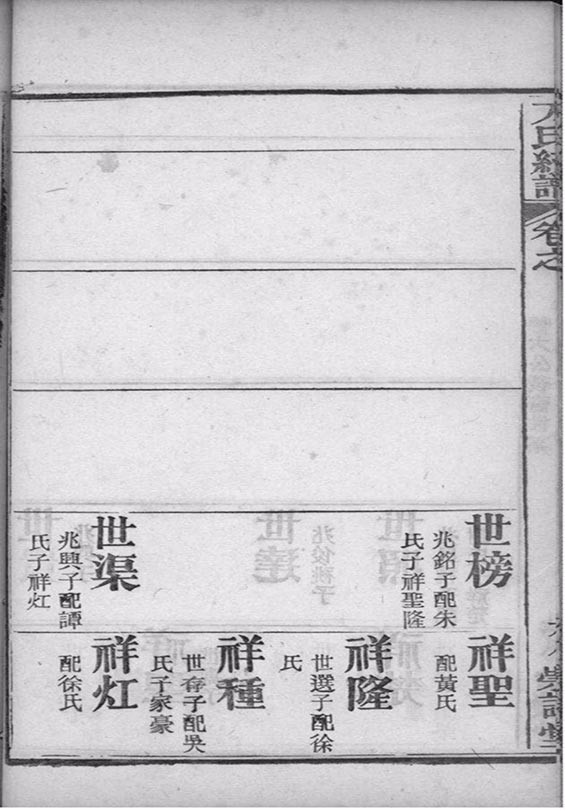 氏續譜
卷之
世榜
兆銘子配朱
氏子祥聖隆
世渠
兆興子配譚
氏子祥灴
祥聖
配黃氏
祥隆
世選子配徐
氏
祥種
世存子配吳
氏子家豪
祥灴
配徐氏